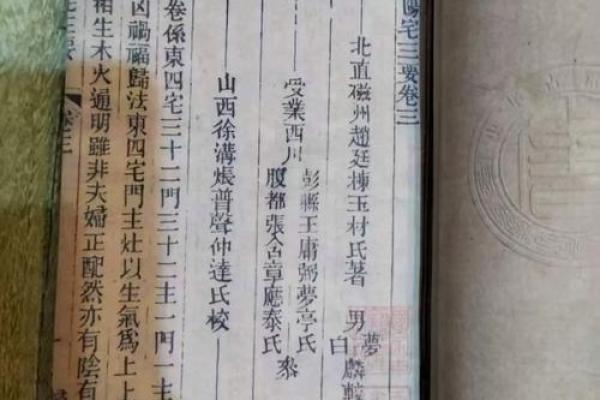 陽宅三要卷三
北直磁州趙廷棟玉材氏著 男夢
白麟較
受業西川
彭縣王庸弼夢亭氏
都張含章廳泰氏
叅
山西徐溝張普聲仲達氏校
卷係東四宅三十二門三十二主一門一主
凶禍福歸法東四宅門主灶以生氣爲上上
相生木火通明雖非夫婦正配然亦有陰有
卷三